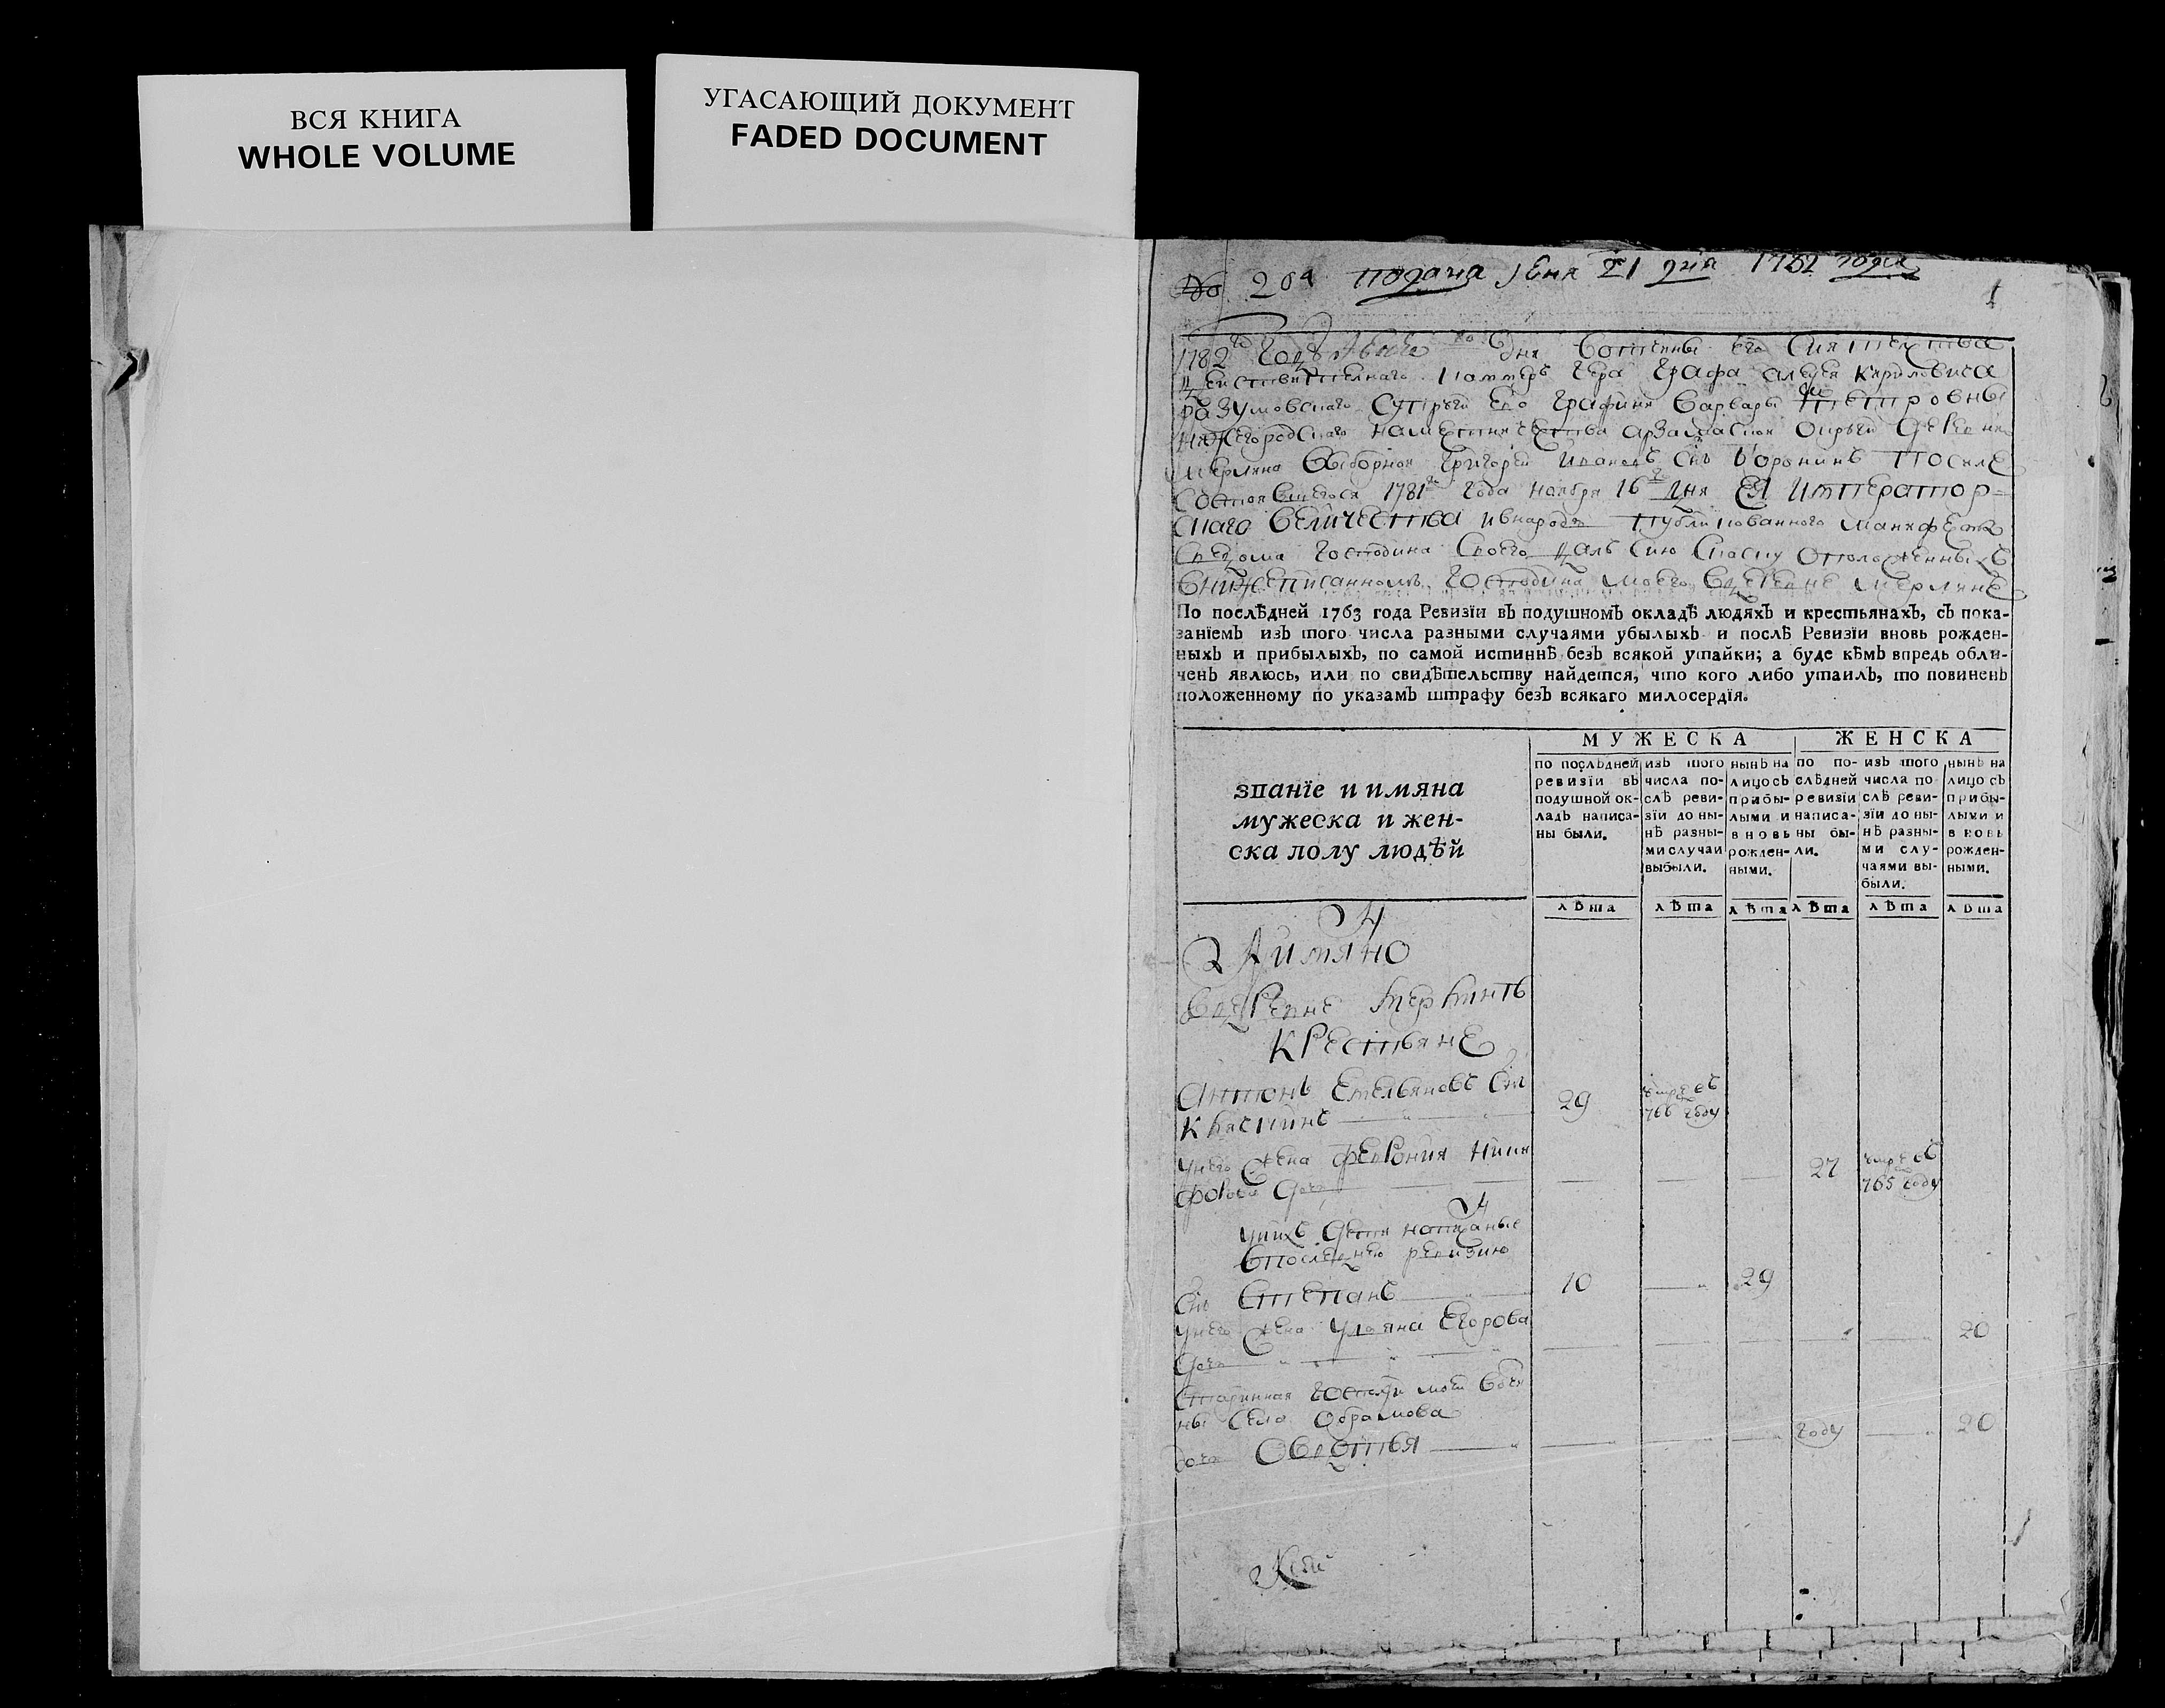 ВСЯ КНИГА
WHOLE VOLUME
УГАСАЮЩИЙ ДОКУМЕНТ
FADED DOCUMENT
подана 21 дня 1782 года
1
1782 дня вотчины его сиятельства
действителнаго графа алексея кириловича
разумовскаго графини варвары петровны
нижегородскаго наместничества арзамаския округи деревни
выборной григорей ивановъ снъ воронинъ после
состоявшегося 1781 года ноября 16 дня ЕЯ император-
скаго величества и в народъ публикованного манифеста
господина своего далъ сию скаску о положенныхъ
господина моего в деревне
По послѣдней 1763 года Ревизїи въ подушномъ окладѣ людяхъ и крестьянахъ, съ пока-
занїемъ изъ того числа разными случаями убылыхъ и послѣ Ревизїи вновь рожден-
ныхъ и прибылыхъ, по самой истиннѣ безъ всякой утайки; а буде кѣмъ впредь обли-
ченъ явлюсь, или по свидѣтельству найдется, что кого либо утаилъ, то повиненъ
положенному по указамъ штрафу безъ всякаго милосердїя.
званїе и имяна
мужеска и жен-
ска полу людѣй
МУЖЕСКА
ЖЕНСКА
по послѣдней
ревизїи въ
подушной ок-
ладъ написа-
ны были.
изъ того
числа по-
слѣ реви-
зїи до ны-
нѣ разны-
ми случаи
выбыли.
нынѣ на
лицо съ
прибы-
лыми и
вновь
рожден-
ными.
по по-
слѣдней
ревизїи
написа-
ны бы-
ли.
изъ того
числа по
слѣ реви-
зїи до ны-
нѣ разны-
ми слу-
чаями вы-
были.
нынѣ на
лицо съ
прибы-
лыми и
вновь
рожден-
ными.
лѣта лѣта лѣта лѣта лѣта лѣта
А имяно
в деревне
крестьяне
Антонъ Емельяновъ снъ
29 умре въ 766 году
у него жена феврония ники
форова дочь 27 умре въ 765 году
у нихъ дети написаные
в последнею ревизию
снъ Степанъ 10 29
у него жена ульяна Егорова
дочь 20
старинная вотчи
ны села Абрамова
дочь Овдотья 20